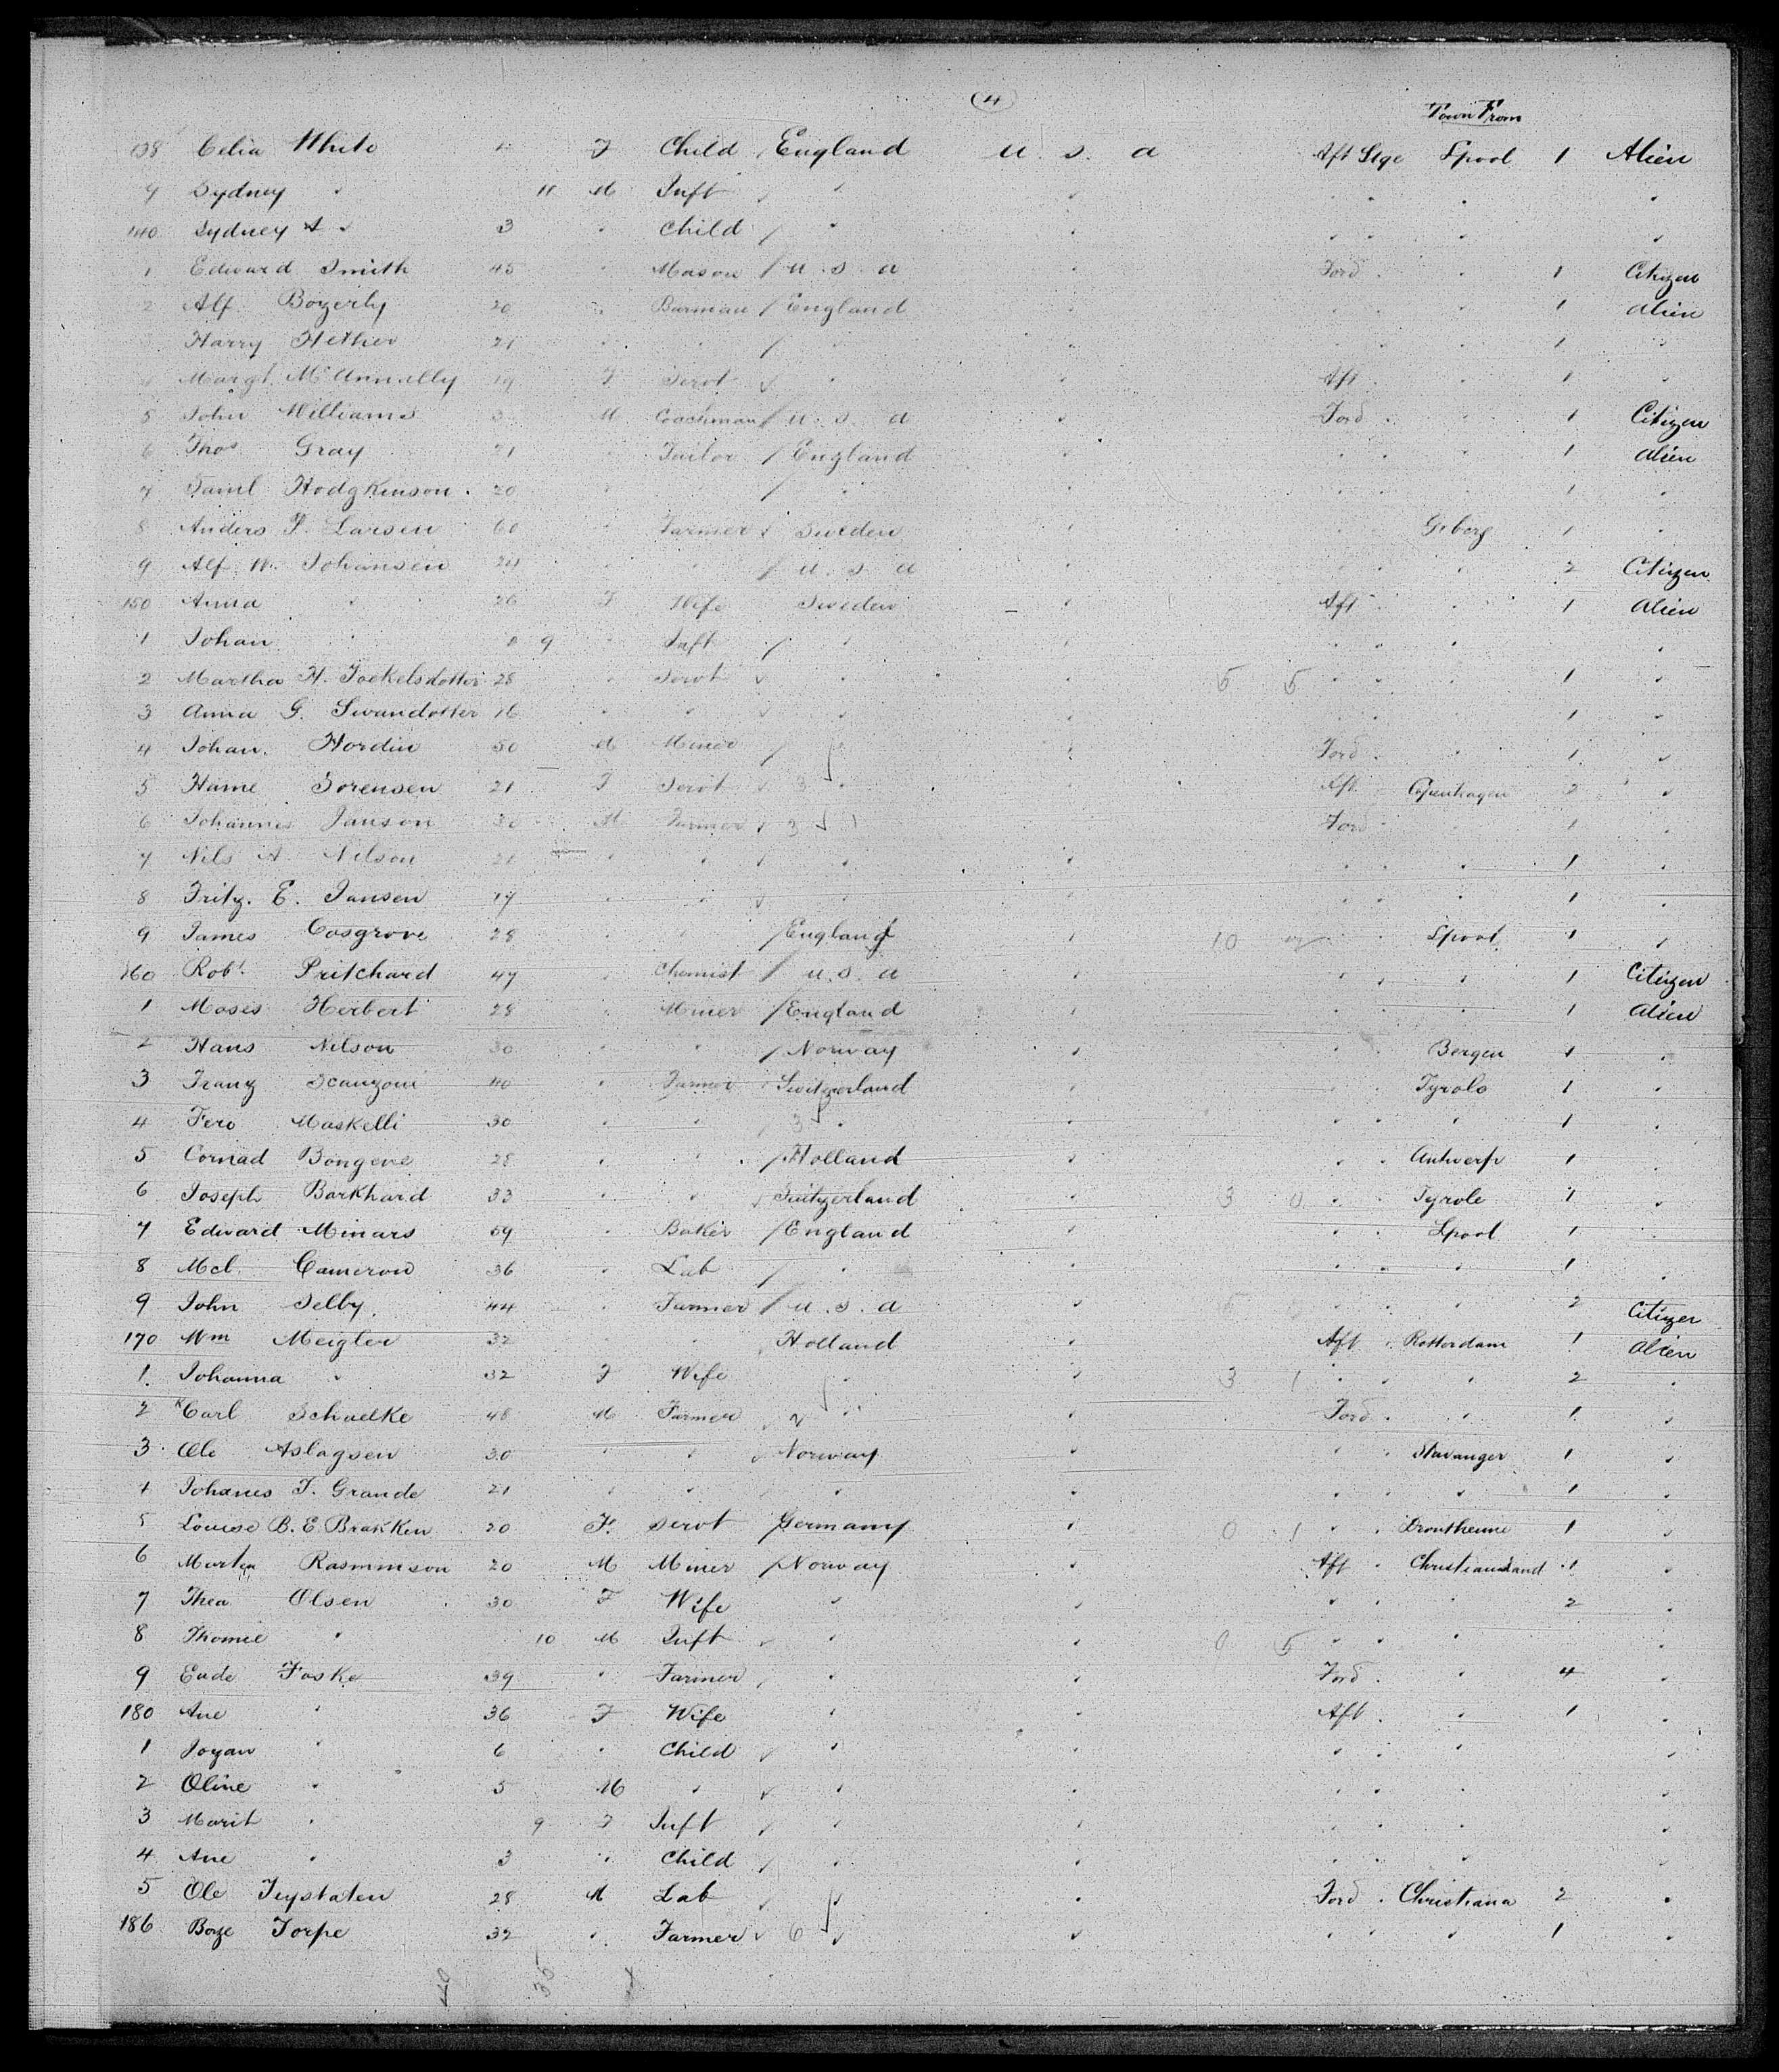 (4)
Town From
138 Celia White F Child England U. S. A Aft Stge Lpool 1 Alien
9 Sydney " 11 M Inft " " " " " "
140 Sydney A " 3 " Child " " " " " "
1 Edward Smith 45 " Mason U. S. A " Ford " " 1 Citizen
2 Alf Bozerly 20 " Barman England " " " " 1 Alien
Harry Hether 21 " " " " " " " 1 "
4 Margt McAnnally 19 F Servt " " Aft " " 1 "
5 John Williams M Coachman U. S. A " Ford " " 1 Citizen
6 Thos Gray 21 " Tailor England " " " " 1 Alien
7 Saml Hodgkinson 20 " " " " " " " 1 "
8 Anders P. Larsen 60 " Farmer Sweden " " " Goborg 1 "
9 Alf W. Johansen 24 " " U. S. A " " " " 2 Citizen
150 Anna " 26 F Wife Sweden " Aft " " 1 Alien
1 Johan " 9 " Inft " " " " " "
2 Martha H. Jockelsdotter 28 " Servt " " 5 5 " " " 1 "
3 Anna G. Swandotter 16 " " " " " " " 1 "
4 Johan. Nordin 50 M Miner " " Ford " " 1 "
5 Hanne Sorensen 21 F Servt 3 " Aft " Copenhagen 2 "
6 Johannes Janson 30 M Farmer 3 Ford " " 1 "
7 Nils A. Nilson 21 " " " " " " " 1 "
8 Fritz. E. Jansen 17 " " " " " " " 1 "
9 James Cosgrove 28 " " England " 10 " Lpool 1 "
160 Robt. Pritchard 47 " Chemist U. S. A " " " " 1 Citizen
1 Moses Herbert 28 " Miner England " " " " 1 Alien
2 Hans Nilson 30 " " Norway " " " Bergen 1 "
3 Franz Scanzoni 40 " Farmer Switzerland " " " Tyrolo 1 "
4 Fero Maskelli 30 " " 3 " " " " " 1 "
5 Cornad Bongene 28 " " Holland " " " Antwerp 1 "
6 Joseph Barkhard 33 " " Switzerland " 3 0 " " Tyrole 1 "
7 Edward Minars 59 " Baker England " " " Lpool 1 "
8 Mcl. Cameron 36 " Lab " " " " " 1 "
9 John Selby 44 " Farmer U. S. A " " " " 2 Citizen
170 Wm Meigler 32 " " Holland " Aft " Rotterdam 1 Alien
1 Johanna " 32 F Wife " " 3 1 " " " 2 "
2 Carl Schaelke 48 M Farmer " " Ford " " 1 "
3 Ole Aslagsen 30 " " Norway " " " Stavanger 1 "
4 Johanes T. Grande 21 " " " " " " " 1 "
5 Louise B. E. Brakken 20 F. Servt Germany " 0 1 " " Drontheime 1 "
6 Morten Rasmmson 20 M Miner Norway Aft " Christiansand 1 "
7 Thea Olsen 30 F Wife " " " " " 2 "
8 Thomie " 10 M Inft " " 0 5 " " " "
9 Eude Foske 39 " Farmer " " Ford " " 4 "
180 Ane " 36 F Wife " " Aft " " 1 "
1 Joyan " 6 " Child " " " " " "
2 Oline " 5 M " " " " " " "
3 Marit " 9 F Inft " " " " " "
4 Ane " 3 " Child " " " " " "
5 Ole Tuystaten 28 M Lab " " Ford " Christiana 2 "
186 Borge Torpe 32 " Farmer 6 " " " " " 1 "
35